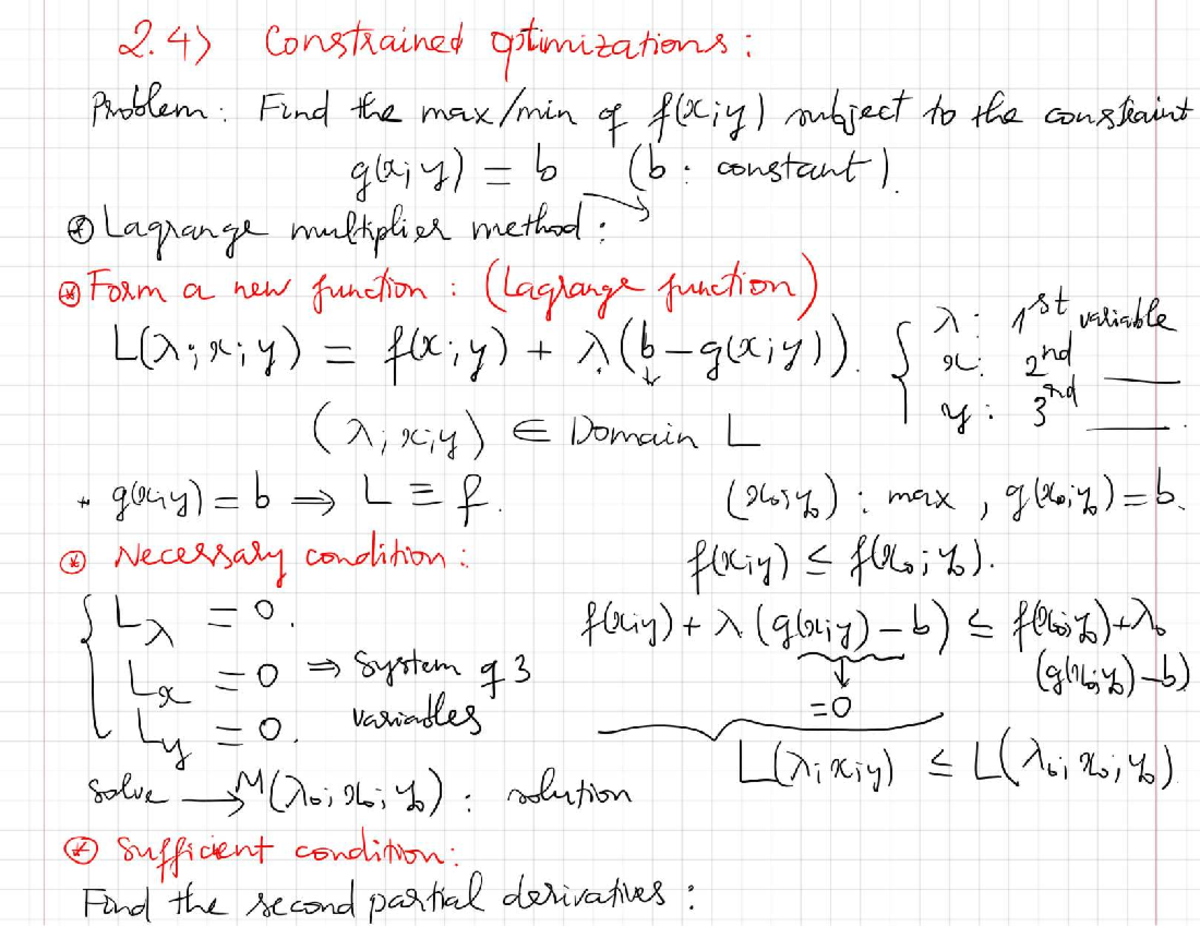 2.4) Constrained optimizations :
Problem : Find the max/min of f(x;y) subject to the constraint
g(x;y) = b (b : constant).
⊛ Lagrange multiplier method :
⊛ Form a new function : (Lagrange function)
L(λ;x;y) = f(x;y) + λ(b-g(x;y)). { λ: 1st variable
x: 2nd ___
y: 3nd ___.
(λ;x;y) ∈ Domain L
* g(x;y) = b ⇒ L ≡ f.
(x₀;y₀) : max , g(x₀;y₀) = b.
⊛ Necessary condition :
f(x;y) ≤ f(x₀;y₀).
{ Lλ = 0.
Lx = 0 ⇒ System of 3
Ly = 0. variables
f(x;y) + λ(g(x;y) - b) ≤ f(x₀;y₀) + λ₀
(g(x₀;y₀) - b)
↓
= 0
L(λ;x;y) ≤ L(λ₀;x₀;y₀).
Solve → M(λ₀;x₀;y₀) : solution
⊛ Sufficient condition :
Find the second partial derivatives :